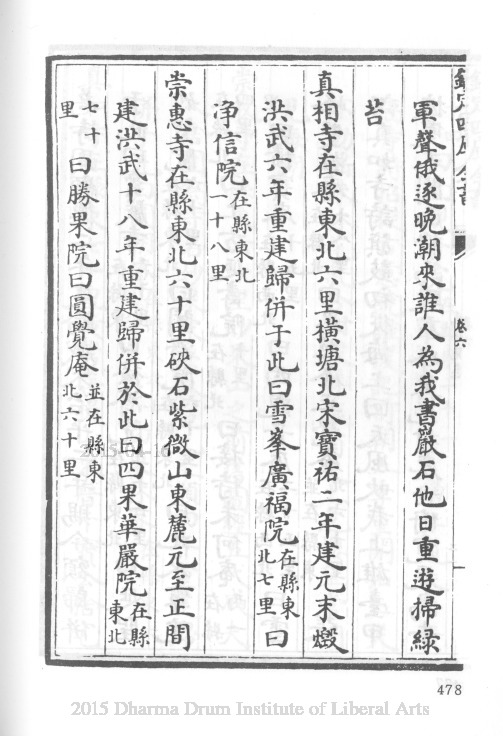 欽定四庫全書
卷六
軍聲俄逐晚潮來誰人為我書巖石他日重遊掃綠
苔
真相寺在縣東北六里橫塘北宋寶祐二年建元末燬
洪武六年重建歸併于此曰雪峯廣福院在縣東北七里曰
淨信院在縣東北一十八里
崇惠寺在縣東北六十里硤石紫微山東麓元至正間
建洪武十八年重建歸併於此曰四果華嚴院在縣東北
七十里曰勝果院曰圓覺庵並在縣東北六十里
478
2015 Dharma Drum Institute of Liberal Arts